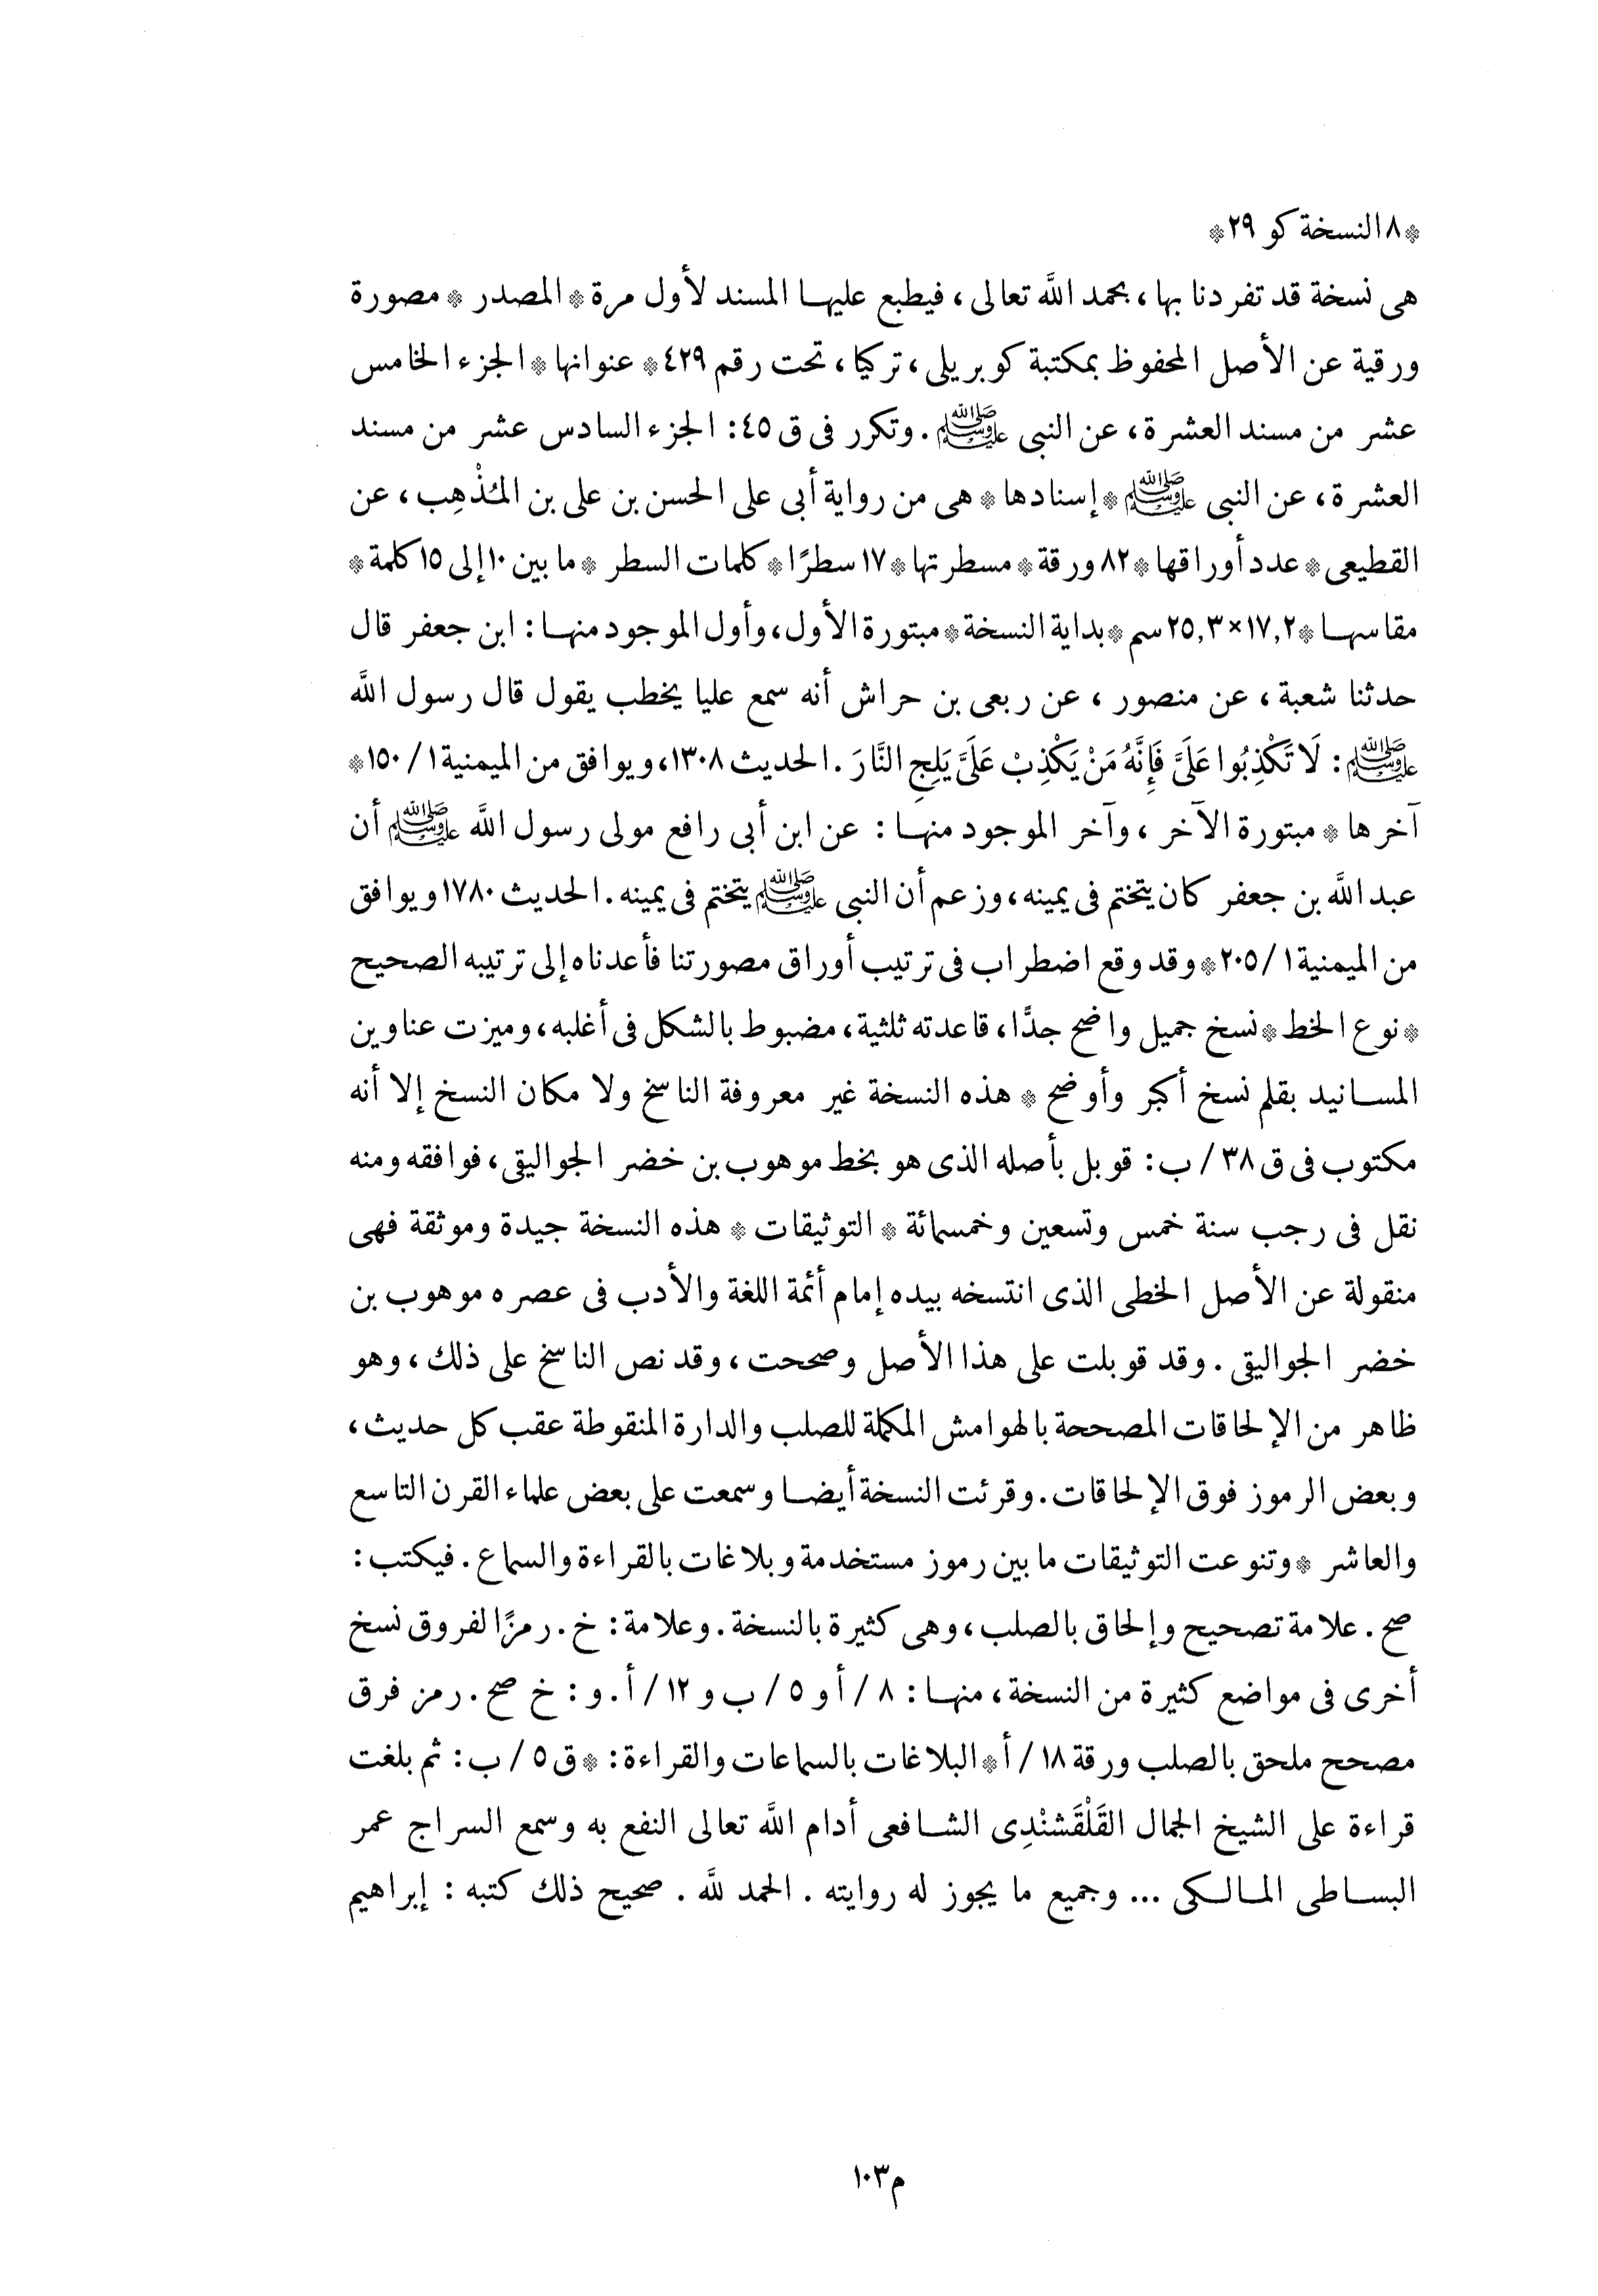 * ٨ النسخة كو ٢٩ *
هى نسخة قد تفردنا بها، بحمد الله تعالى، فيطبع عليها المسند لأول مرة * المصدر * مصورة
ورقية عن الأصل المحفوظ بمكتبة كوبريلى، تركيا، تحت رقم ٤٢٩ * عنوانها * الجزء الخامس
عشر من مسند العشرة، عن النبى ﷺ. وتكرر فى ق ٤٥: الجزء السادس عشر من مسند
العشرة، عن النبى ﷺ * إسنادها * هى من رواية أبى على الحسن بن على بن المُذْهِب، عن
القطيعى * عدد أوراقها * ٨٢ ورقة * مسطرتها * ١٧ سطرًا * كلمات السطر * ما بين ١٠ إلى ١٥ كلمة *
مقاسها * ١٧,٢ × ٢٥,٣ سم * بداية النسخة * مبتورة الأول، وأول الموجود منها: ابن جعفر قال
حدثنا شعبة، عن منصور، عن ربعى بن حراش أنه سمع عليا يخطب يقول قال رسول الله
ﷺ: لَا تَكْذِبُوا عَلَىَّ فَإِنَّهُ مَنْ يَكْذِبْ عَلَىَّ يَلِجِ النَّارَ. الحديث ١٣٠٨، ويوافق من الميمنية ١/ ١٥٠ *
آخرها * مبتورة الآخر، وآخر الموجود منها: عن ابن أبى رافع مولى رسول الله ﷺ أن
عبد الله بن جعفر كان يتختم فى يمينه، وزعم أن النبى ﷺ يتختم فى يمينه. الحديث ١٧٨٠ ويوافق
من الميمنية ١/ ٢٠٥ * وقد وقع اضطراب فى ترتيب أوراق مصورتنا فأعدناه إلى ترتيبه الصحيح
* نوع الخط * نسخ جميل واضح جدًّا، قاعدته ثلثية، مضبوط بالشكل فى أغلبه، وميزت عناوين
المسانيد بقلم نسخ أكبر وأوضح * هذه النسخة غير معروفة الناسخ ولا مكان النسخ إلا أنه
مكتوب فى ق ٣٨/ ب: قوبل بأصله الذى هو بخط موهوب بن خضر الجواليقى، فوافقه ومنه
نقل فى رجب سنة خمس وتسعين وخمسمائة * التوثيقات * هذه النسخة جيدة وموثقة فهى
منقولة عن الأصل الخطى الذى انتسخه بيده إمام أئمة اللغة والأدب فى عصره موهوب بن
خضر الجواليقى. وقد قوبلت على هذا الأصل وصححت، وقد نص الناسخ على ذلك، وهو
ظاهر من الإلحاقات المصححة بالهوامش المكملة للصلب والدارة المنقوطة عقب كل حديث،
وبعض الرموز فوق الإلحاقات. وقرئت النسخة أيضا وسمعت على بعض علماء القرن التاسع
والعاشر * وتنوعت التوثيقات ما بين رموز مستخدمة وبلاغات بالقراءة والسماع. فيكتب:
صح. علامة تصحيح وإلحاق بالصلب، وهى كثيرة بالنسخة. وعلامة: خ. رمزًا لفروق نسخ
أخرى فى مواضع كثيرة من النسخة، منها: ٨/ أ و ٥/ ب و ١٢/ أ. و: خ صح. رمز فرق
مصحح ملحق بالصلب ورقة ١٨/ أ * البلاغات بالسماعات والقراءة: * ق ٥/ ب: ثم بلغت
قراءة على الشيخ الجمال القَلْقَشَنْدِى الشافعى أدام الله تعالى النفع به وسمع السراج عمر
البساطى المالكى ... وجميع ما يجوز له روايته. الحمد لله. صحيح ذلك كتبه: إبراهيم
م ١٠٣